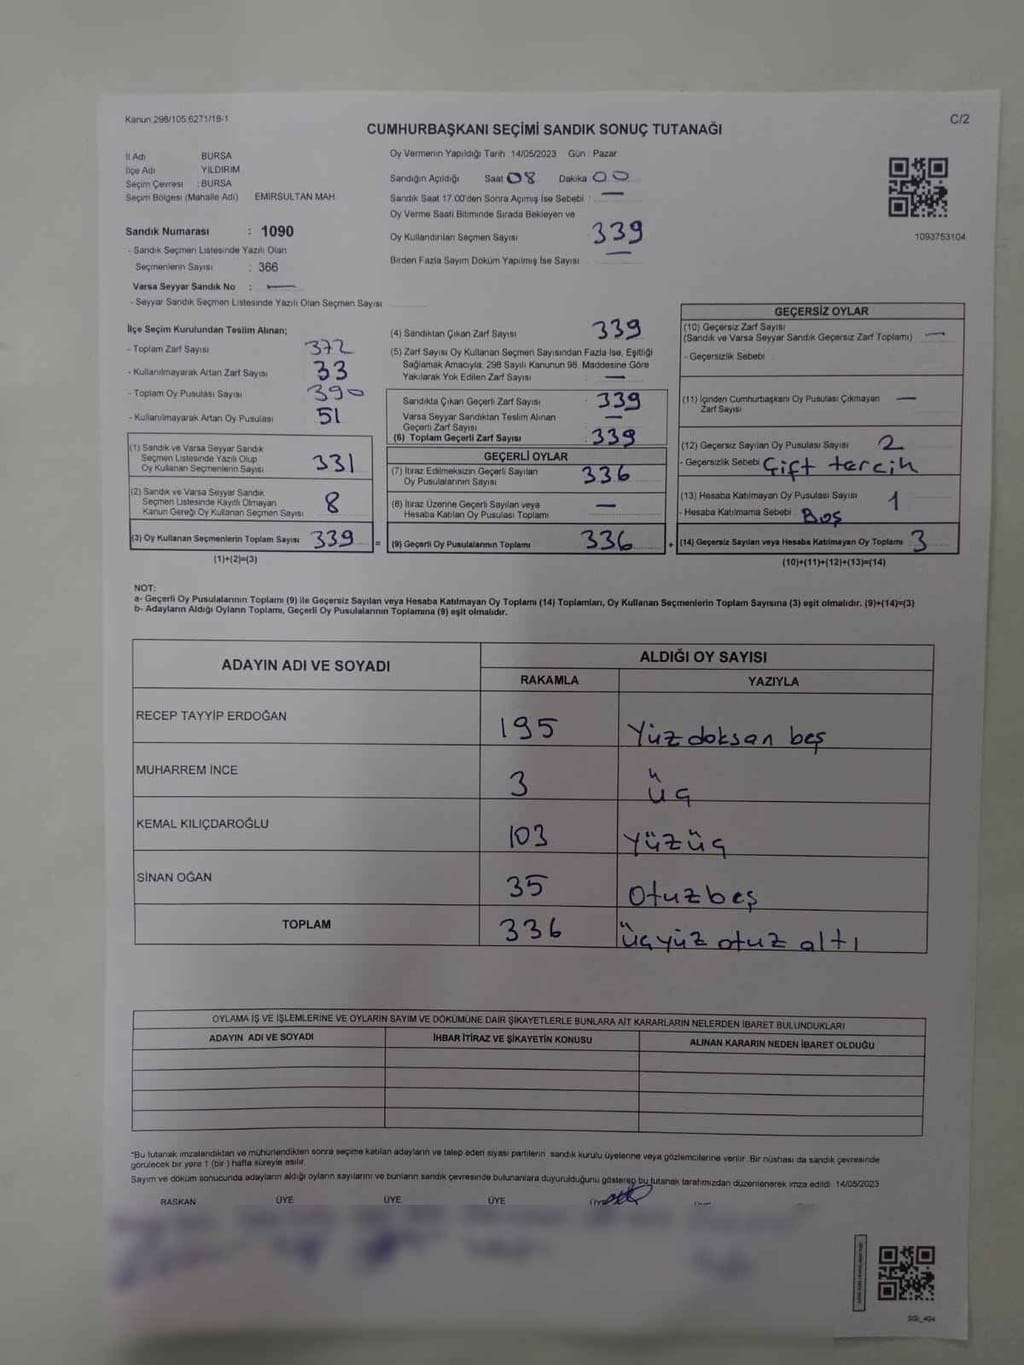 Kanun 298/105 6271/18-1
C/2
CUMHURBAŞKANI SEÇİMİ SANDIK SONUÇ TUTANAĞI
İl Adı BURSA
İlçe Adı YILDIRIM
Seçim Çevresi : BURSA
Seçim Bölgesi (Mahalle Adı) EMİRSULTAN MAH
Sandık Numarası : 1090
- Sandık Seçmen Listesinde Yazılı Olan
Seçmenlerin Sayısı : 366
Varsa Seyyar Sandık No : —
- Seyyar Sandık Seçmen Listesinde Yazılı Olan Seçmen Sayısı
Oy Vermenin Yapıldığı Tarih 14/05/2023 Gün Pazar
Sandığın Açıldığı Saat 08 Dakika 00
Sandık Saat 17.00'den Sonra Açımış İse Sebebi : —
Oy Verme Saati Bitiminde Sırada Bekleyen ve
Oy Kullandırılan Seçmen Sayısı 339
Birden Fazla Sayım Döküm Yapılmış İse Sayısı —
1093753104
İlçe Seçim Kurulundan Teslim Alınan;
- Toplam Zarf Sayısı 372
- Kullanılmayarak Artan Zarf Sayısı 33
- Toplam Oy Pusulası Sayısı 390
- Kullanılmayarak Artan Oy Pusulası 51
(1) Sandık ve Varsa Seyyar Sandık
Seçmen Listesinde Yazılı Olup
Oy Kullanan Seçmenlerin Sayısı 331
(2) Sandık ve Varsa Seyyar Sandık
Seçmen Listesinde Kayıtlı Olmayan
Kanun Gereği Oy Kullanan Seçmen Sayısı 8
(3) Oy Kullanan Seçmenlerin Toplam Sayısı 339 =
(1)+(2)=(3)
(4) Sandıktan Çıkan Zarf Sayısı 339
(5) Zarf Sayısı Oy Kullanan Seçmen Sayısından Fazla İse, Eşitliği
Sağlamak Amacıyla, 298 Sayılı Kanunun 98. Maddesine Göre
Yakılarak Yok Edilen Zarf Sayısı : —
Sandıkta Çıkan Geçerli Zarf Sayısı : 339
Varsa Seyyar Sandıktan Teslim Alınan
Geçerli Zarf Sayısı —
(6) Toplam Geçerli Zarf Sayısı : 339
GEÇERLİ OYLAR
(7) İtiraz Edilmeksizin Geçerli Sayılan
Oy Pusulalarının Sayısı : 336
(8) İtiraz Üzerine Geçerli Sayılan veya
Hesaba Katılan Oy Pusulası Toplamı : —
(9) Geçerli Oy Pusulalarının Toplamı : 336 +
GEÇERSİZ OYLAR
(10) Geçersiz Zarf Sayısı
(Sandık ve Varsa Seyyar Sandık Geçersiz Zarf Toplamı) —
- Geçersizlik Sebebi
(11) İçinden Cumhurbaşkanı Oy Pusulası Çıkmayan
Zarf Sayısı —
(12) Geçersiz Sayılan Oy Pusulası Sayısı 2
- Geçersizlik Sebebi Çift tercih
(13) Hesaba Katılmayan Oy Pusulası Sayısı 1
- Hesaba Katılmama Sebebi Boş
(14) Geçersiz Sayılan veya Hesaba Katılmayan Oy Toplamı 3
(10)+(11)+(12)+(13)=(14)
NOT:
a- Geçerli Oy Pusulalarının Toplamı (9) ile Geçersiz Sayılan veya Hesaba Katılmayan Oy Toplamı (14) Toplamları, Oy Kullanan Seçmenlerin Toplam Sayısına (3) eşit olmalıdır. (9)+(14)=(3)
b- Adayların Aldığı Oyların Toplamı, Geçerli Oy Pusulalarının Toplamına (9) eşit olmalıdır.
ADAYIN ADI VE SOYADI ALDIĞI OY SAYISI
RAKAMLA YAZIYLA
RECEP TAYYİP ERDOĞAN 195 Yüzdoksan beş
MUHARREM İNCE 3 üç
KEMAL KILIÇDAROĞLU 103 Yüzüç
SİNAN OĞAN 35 Otuzbeş
TOPLAM 336 üçyüz otuz altı
OYLAMA İŞ VE İŞLEMLERİNE VE OYLARIN SAYIM VE DÖKÜMÜNE DAİR ŞİKAYETLERLE BUNLARA AİT KARARLARIN NELERDEN İBARET BULUNDUKLARI
ADAYIN ADI VE SOYADI İHBAR İTİRAZ VE ŞİKAYETİN KONUSU ALINAN KARARIN NEDEN İBARET OLDUĞU
"Bu tutanak imzalandıktan ve mühürlendikten sonra seçime katılan adayların ve talep eden siyasi partilerin sandık kurulu üyelerine veya gözlemcilerine verilir. Bir nüshası da sandık çevresinde
görülecek bir yere 1 (bir) hafta süreyle asılır.
Sayım ve döküm sonucunda adayların aldığı oyların sayılarını ve bunların sandık çevresinde bulunanlara duyurulduğunu gösteren bu tutanak tarafımızdan düzenlenerek imza edildi. 14/05/2023
BAŞKAN ÜYE ÜYE ÜYE